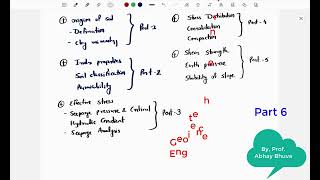 ① Origin of soil
- Definition
- Clay mineralogy
Part-1
② Index properties
Soil classification
Permeability
Part-2
③ Effective stress
- Seepage pressure & Critical
Hydraulic Gradient
- Seepage Analysis
Part-3
Stress Distribution
Consolidation
Compaction
Part-4
Shear strength
Earth pressure
Stability of slope
Part-5
Part 6
By, Prof.
Abhay Bhuva